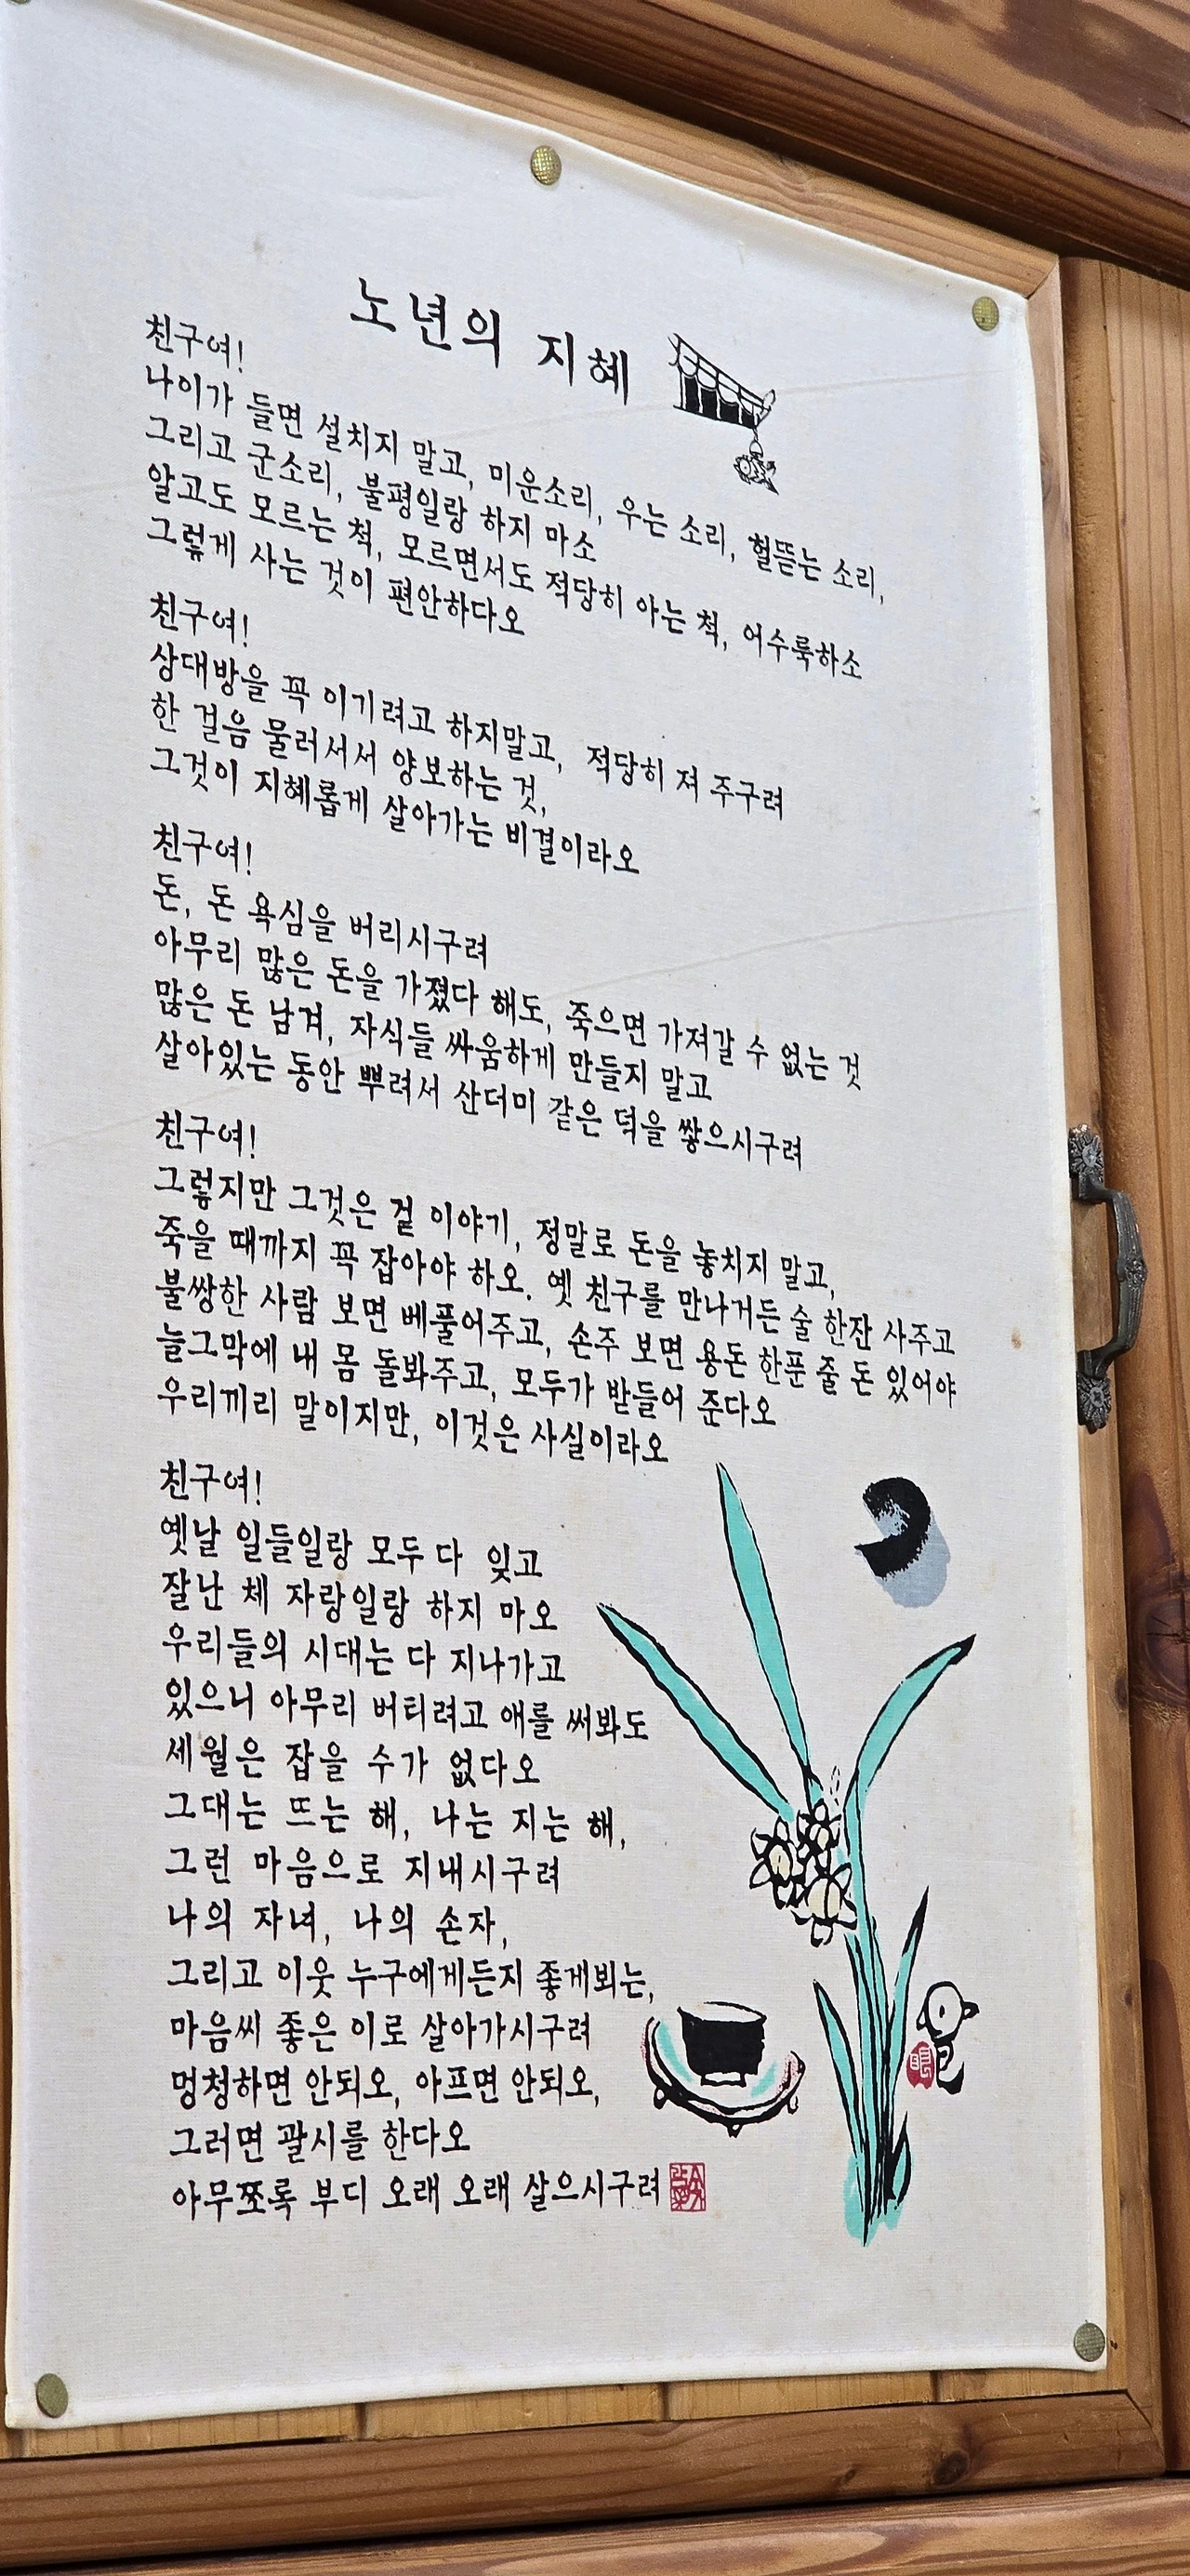 노년의 지혜
친구여!
나이가 들면 설치지 말고, 미운소리, 우는 소리, 헐뜯는 소리,
그리고 군소리, 불평일랑 하지 마소
알고도 모르는 척, 모르면서도 적당히 아는 척, 어수룩하소
그렇게 사는 것이 편안하다오
친구여!
상대방을 꼭 이기려고 하지말고, 적당히 져 주구려
한 걸음 물러서서 양보하는 것,
그것이 지혜롭게 살아가는 비결이라오
친구여!
돈, 돈 욕심을 버리시구려
아무리 많은 돈을 가졌다 해도, 죽으면 가져갈 수 없는 것
많은 돈 남겨, 자식들 싸움하게 만들지 말고
살아있는 동안 뿌려서 산더미 같은 덕을 쌓으시구려
친구여!
그렇지만 그것은 겉 이야기, 정말로 돈을 놓치지 말고,
죽을 때까지 꼭 잡아야 하오. 옛 친구를 만나거든 술 한잔 사주고
불쌍한 사람 보면 베풀어주고, 손주 보면 용돈 한푼 줄 돈 있어야
늘그막에 내 몸 돌봐주고, 모두가 받들어 준다오
우리끼리 말이지만, 이것은 사실이라오
친구여!
옛날 일들일랑 모두 다 잊고
잘난 체 자랑일랑 하지 마오
우리들의 시대는 다 지나가고
있으니 아무리 버티려고 애를 써봐도
세월은 잡을 수가 없다오
그대는 뜨는 해, 나는 지는 해,
그런 마음으로 지내시구려
나의 자녀, 나의 손자,
그리고 이웃 누구에게든지 좋게뵈는,
마음씨 좋은 이로 살아가시구려
멍청하면 안되오, 아프면 안되오,
그러면 괄시를 한다오
아무쪼록 부디 오래 오래 살으시구려